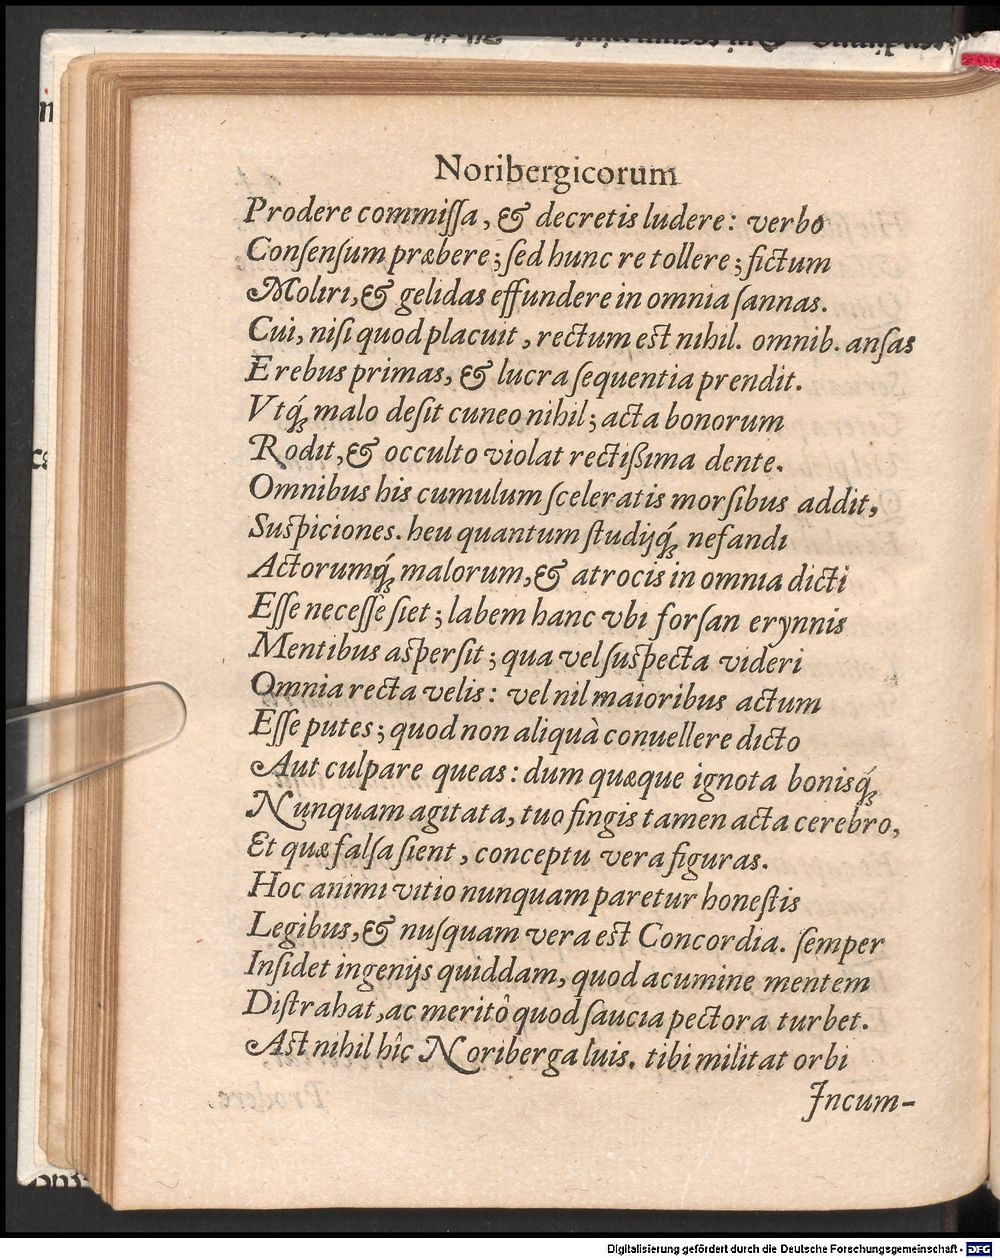 Noribergicorum
Prodere commiſſa, & decretis ludere: verbo
Conſenſum præbere; ſed hunc re tollere; fictum
Moliri, & gelidas effundere in omnia ſannas.
Cui, niſi quod placuit, rectum est nihil. omnib. anſas
Erebus primas, & lucra ſequentia prendit.
Vtq́; malo deſit cuneo nihil; acta bonorum
Rodit, & occulto violat rectißima dente.
Omnibus his cumulum ſceleratis morſibus addit,
Suspiciones. heu quantum ſtudijq́; nefandi
Actorumq́; malorum, & atrocis in omnia dicti
Eſſe neceſſe ſiet; labem hanc vbi forſan erynnis
Mentibus asperſit; qua vel ſuspecta videri
Omnia recta velis: vel nil maioribus actum
Eſſe putes; quod non aliquà conuellere dicto
Aut culpare queas: dum quæque ignota bonisq́;
Nunquam agitata, tuo fingis tamen acta cerebro,
Et quæ falſa ſient, conceptu vera figuras.
Hoc animi vitio nunquam paretur honeſtis
Legibus, & nuſquam vera est Concordia. ſemper
Inſidet ingenijs quiddam, quod acumine mentem
Diſtrahat, ac meritò quod ſaucia pectora turbet.
Ast nihil hîc Noriberga luis. tibi militat orbi
Incum-
Digitalisierung gefördert durch die Deutsche Forschungsgemeinschaft - DFG